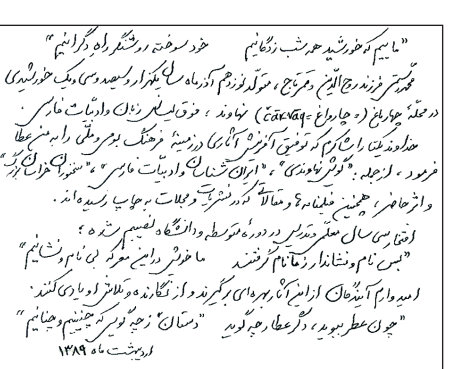 "ماییم که خورشید همه شب زدگانیم    خود سوخته روشنگر راه دگرانیم"
محمد رستمی فرزند روح‌الدین و قمرتاج، متولد نوزدهم آذرماه سال یکهزار و سیصد و سی و یک خورشیدی
در محله چهارباغ (= چارواغ = čārvāq) نهاوند، فوق لیسانس زبان و ادبیات فارسی.
خداوند یکتا را شاکرم که توفیق آفرینش آثاری در زمینهٔ فرهنگ بومی و ملّی را به من عطا
فرمود، از جمله: "گویش نهاوندی"، "ایران شناسان و ادبیات فارسی"، "سخنوران خراسان بزرگ"
و اثر حاضر، همچنین فیلمنامه‌ها و مقالاتی که در نشریات و مجلات به چاپ رسیده‌اند.
افتخار سی سال معلمی و تدریس در دوره متوسطه و دانشگاه نصیبم شده؛
"بس نام و نشاندار ز ما نام گرفتند    ما خوش در این معرکه بی نام و نشانیم"
امیدوارم آیندگان از این آثار بهره‌ای برگیرند و از نگارنده و تلاش او یادی کنند.
"چون عطر ببوید، دگر عطار چه گوید    "دستان" ز چه گویی که چنینیم و چنانیم"
اردیبهشت ماه ۱۳۸۹